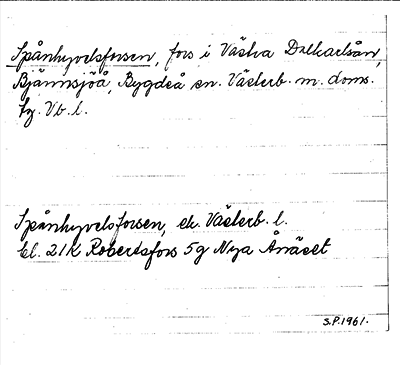 Spånhyvelsforsen, fors i Västra Dalkarlsån,
Bjännsjöå, Bygdeå sn. Västerb. m. doms.
fg. Vb. l.
Spånhyvelsforsen, ek. Västerb. l.
bl. 21K Robertsfors 5g Nya Ånäset
S.P. 1961.